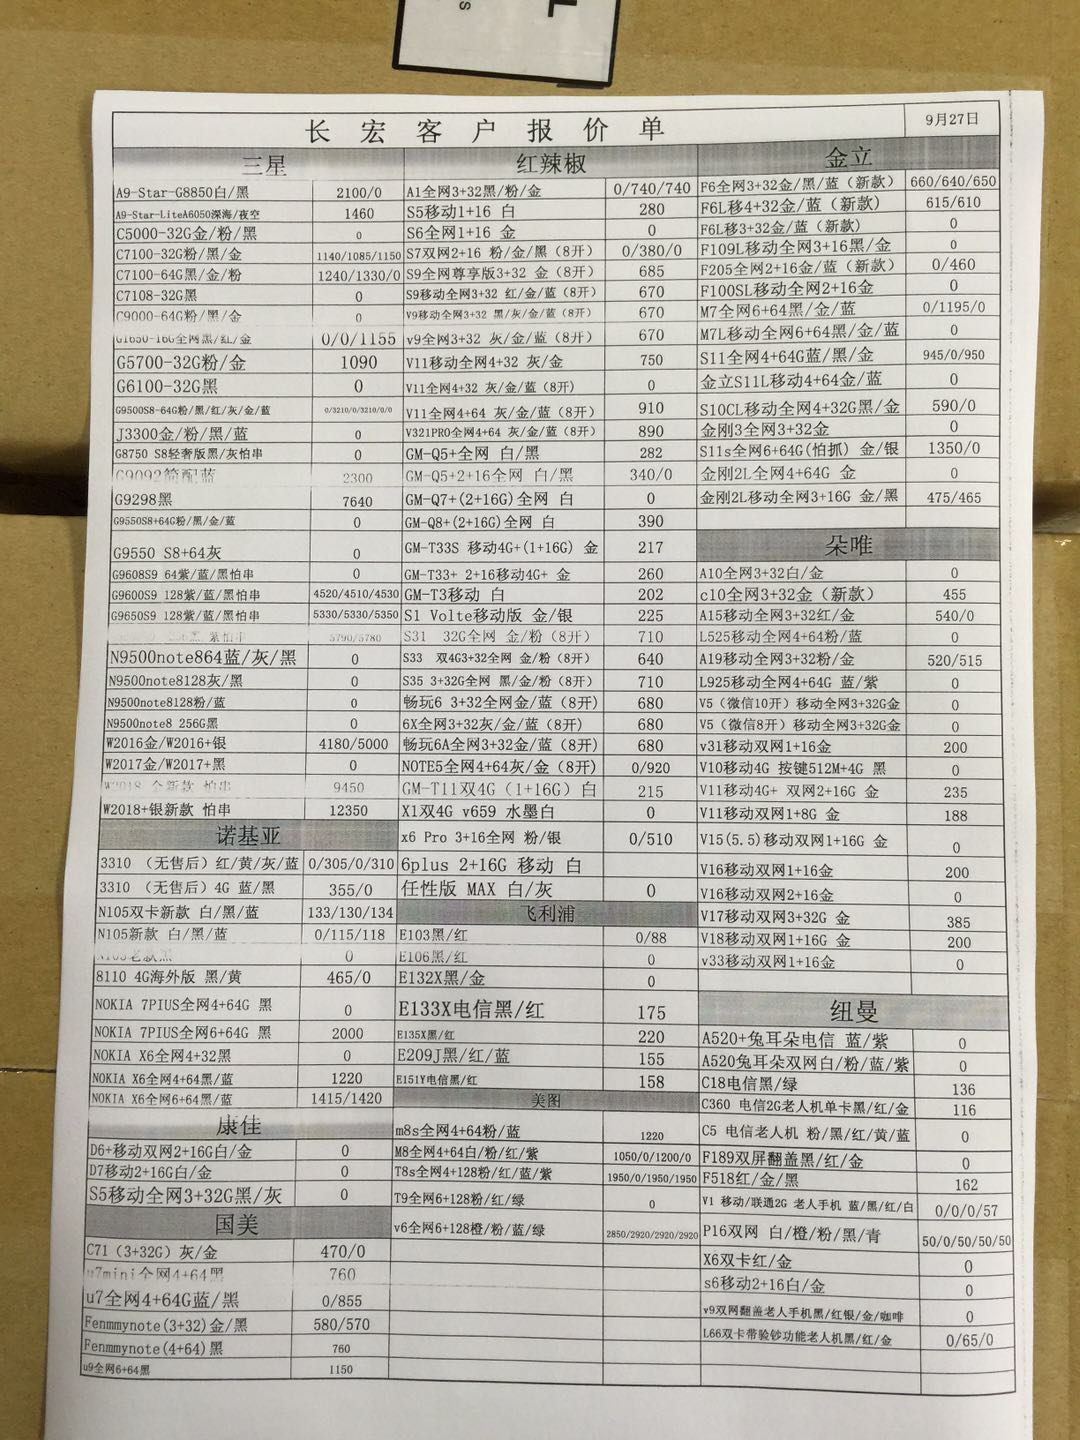 长宏客户报价单
9月27日
三星
A9-Star-G8850白/黑 2100/0
A9-Star-LiteA6050深海/夜空 1460
C5000-32G金/粉/黑 0
C7100-32G粉/黑/金 1140/1085/1150
C7100-64G黑/金/粉 1240/1330/0
C7108-32G黑 0
C9000-64G粉/黑/金 0
G1650-16G全网黑/红/金 0/0/1155
G5700-32G粉/金 1090
G6100-32G黑 0
G9500S8-64G粉/黑/红/灰/金/蓝 0/3210/0/3210/0/0
J3300金/粉/黑/蓝 0
G8750 S8轻奢版黑/灰怕串 0
G9092简配蓝 2300
G9298黑 7640
G9550S8+64G粉/黑/金/蓝 0
G9550 S8+64灰 0
G9608S9 64紫/蓝/黑怕串 0
G9600S9 128紫/蓝/黑怕串 4520/4510/4530
G9650S9 128紫/蓝/黑怕串 5330/5330/5350
紫怕串 5790/5780
N9500note864蓝/灰/黑 0
N9500note8128灰/黑 0
N9500note8128粉/蓝 0
N9500note8 256G黑 0
W2016金/W2016+银 4180/5000
W2017金/W2017+黑 0
W2018 全新款 怕串 9450
W2018+银新款 怕串 12350
诺基亚
3310 （无售后）红/黄/灰/蓝 0/305/0/310
3310 （无售后）4G 蓝/黑 355/0
N105双卡新款 白/黑/蓝 133/130/134
N105新款 白/黑/蓝 0/115/118
N105老款黑 0
8110 4G海外版 黑/黄 465/0
NOKIA 7PIUS全网4+64G 黑 0
NOKIA 7PIUS全网6+64G 黑 2000
NOKIA X6全网4+32黑 0
NOKIA X6全网4+64黑/蓝 1220
NOKIA X6全网6+64黑/蓝 1415/1420
康佳
D6+移动双网2+16G白/金 0
D7移动2+16G白/金 0
S5移动全网3+32G黑/灰 0
国美
C71（3+32G）灰/金 470/0
u7mini全网4+64黑 760
u7全网4+64G蓝/黑 0/855
Fenmmynote(3+32)金/黑 580/570
Fenmmynote(4+64)黑 760
u9全网6+64黑 1150
红辣椒
A1全网3+32黑/粉/金 0/740/740
S5移动1+16 白 280
S6全网1+16 金 0
S7双网2+16 粉/金/黑（8开） 0/380/0
S9全网尊享版3+32 金（8开） 685
S9移动全网3+32 红/金/蓝（8开） 670
V9移动全网3+32 黑/灰/金/蓝（8开） 670
v9全网3+32 灰/金/蓝（8开） 670
V11移动全网4+32 灰/金 750
V11全网4+32 灰/金/蓝(8开) 0
V11全网4+64 灰/金/蓝（8开） 910
V321PRO全网4+64 灰/金/蓝（8开） 890
GM-Q5+全网 白/黑 282
GM-Q5+2+16全网 白/黑 340/0
GM-Q7+(2+16G)全网 白 0
GM-Q8+(2+16G)全网 白 390
GM-T33S 移动4G+(1+16G) 金 217
GM-T33+ 2+16移动4G+ 金 260
GM-T3移动 白 202
S1 Volte移动版 金/银 225
S31 32G全网 金/粉（8开） 710
S33 双4G3+32全网 金/粉（8开） 640
S35 3+32G全网 黑/金/粉（8开） 710
畅玩6 3+32全网金/蓝（8开） 680
6X全网3+32灰/金/蓝（8开） 680
畅玩6A全网3+32金/蓝（8开) 680
NOTE5全网4+64灰/金（8开） 0/920
GM-T11双4G（1+16G）白 215
X1双4G v659 水墨白 0
x6 Pro 3+16全网 粉/银 0/510
6plus 2+16G 移动 白
任性版 MAX 白/灰 0
飞利浦
E103黑/红 0/88
E106黑/红 0
E132X黑/金 0
E133X电信黑/红 175
E135X黑/红 220
E209J黑/红/蓝 155
E151Y电信黑/红 158
美图
m8s全网4+64粉/蓝 1220
M8全网4+64白/粉/红/紫 1050/0/1200/0
T8s全网4+128粉/红/蓝/紫 1950/0/1950/1950
T9全网6+128粉/红/绿 0
v6全网6+128橙/粉/蓝/绿 2850/2920/2920/2920
金立
F6全网3+32金/黑/蓝（新款） 660/640/650
F6L移4+32金/蓝（新款） 615/610
F6L移3+32金/蓝（新款） 0
F109L移动全网3+16黑/金 0
F205全网2+16金/蓝（新款） 0/460
F100SL移动全网2+16金 0
M7全网6+64黑/金/蓝 0/1195/0
M7L移动全网6+64黑/金/蓝 0
S11全网4+64G蓝/黑/金 945/0/950
金立S11L移动4+64金/蓝 0
S10CL移动全网4+32G黑/金 590/0
金刚3全网3+32金 0
S11s全网6+64G(怕抓）金/银 1350/0
金刚2L全网4+64G 金 0
金刚2L移动全网3+16G 金/黑 475/465
0
朵唯
A10全网3+32白/金 0
c10全网3+32金（新款） 455
A15移动全网3+32红/金 540/0
L525移动全网4+64粉/蓝 0
A19移动全网3+32粉/金 520/515
L925移动全网4+64G 蓝/紫 0
V5（微信10开）移动全网3+32G金 0
V5（微信8开）移动全网3+32G金 0
v31移动双网1+16金 200
V10移动4G 按键512M+4G 黑 0
V11移动4G+ 双网2+16G 金 235
V11移动双网1+8G 金 188
V15(5.5)移动双网1+16G 金 0
V16移动双网1+16金 200
V16移动双网2+16金 0
V17移动双网3+32G 金 385
V18移动双网1+16G 金 200
v33移动双网1+16金 0
纽曼
A520+兔耳朵电信 蓝/紫 0
A520兔耳朵双网白/粉/蓝/紫 0
C18电信黑/绿 136
C360 电信2G老人机单卡黑/红/金 116
C5 电信老人机 粉/黑/红/黄/蓝 0
F189双屏翻盖黑/红/金 0
F518红/金/黑 162
V1 移动/联通2G 老人手机 蓝/黑/红/白 0/0/0/57
P16双网 白/橙/粉/黑/青 50/0/50/50/50
X6双卡红/金 0
s6移动2+16白/金 0
v9双网翻盖老人手机黑/红银/金/咖啡 0
L66双卡带验钞功能老人机黑/红/金 0/65/0